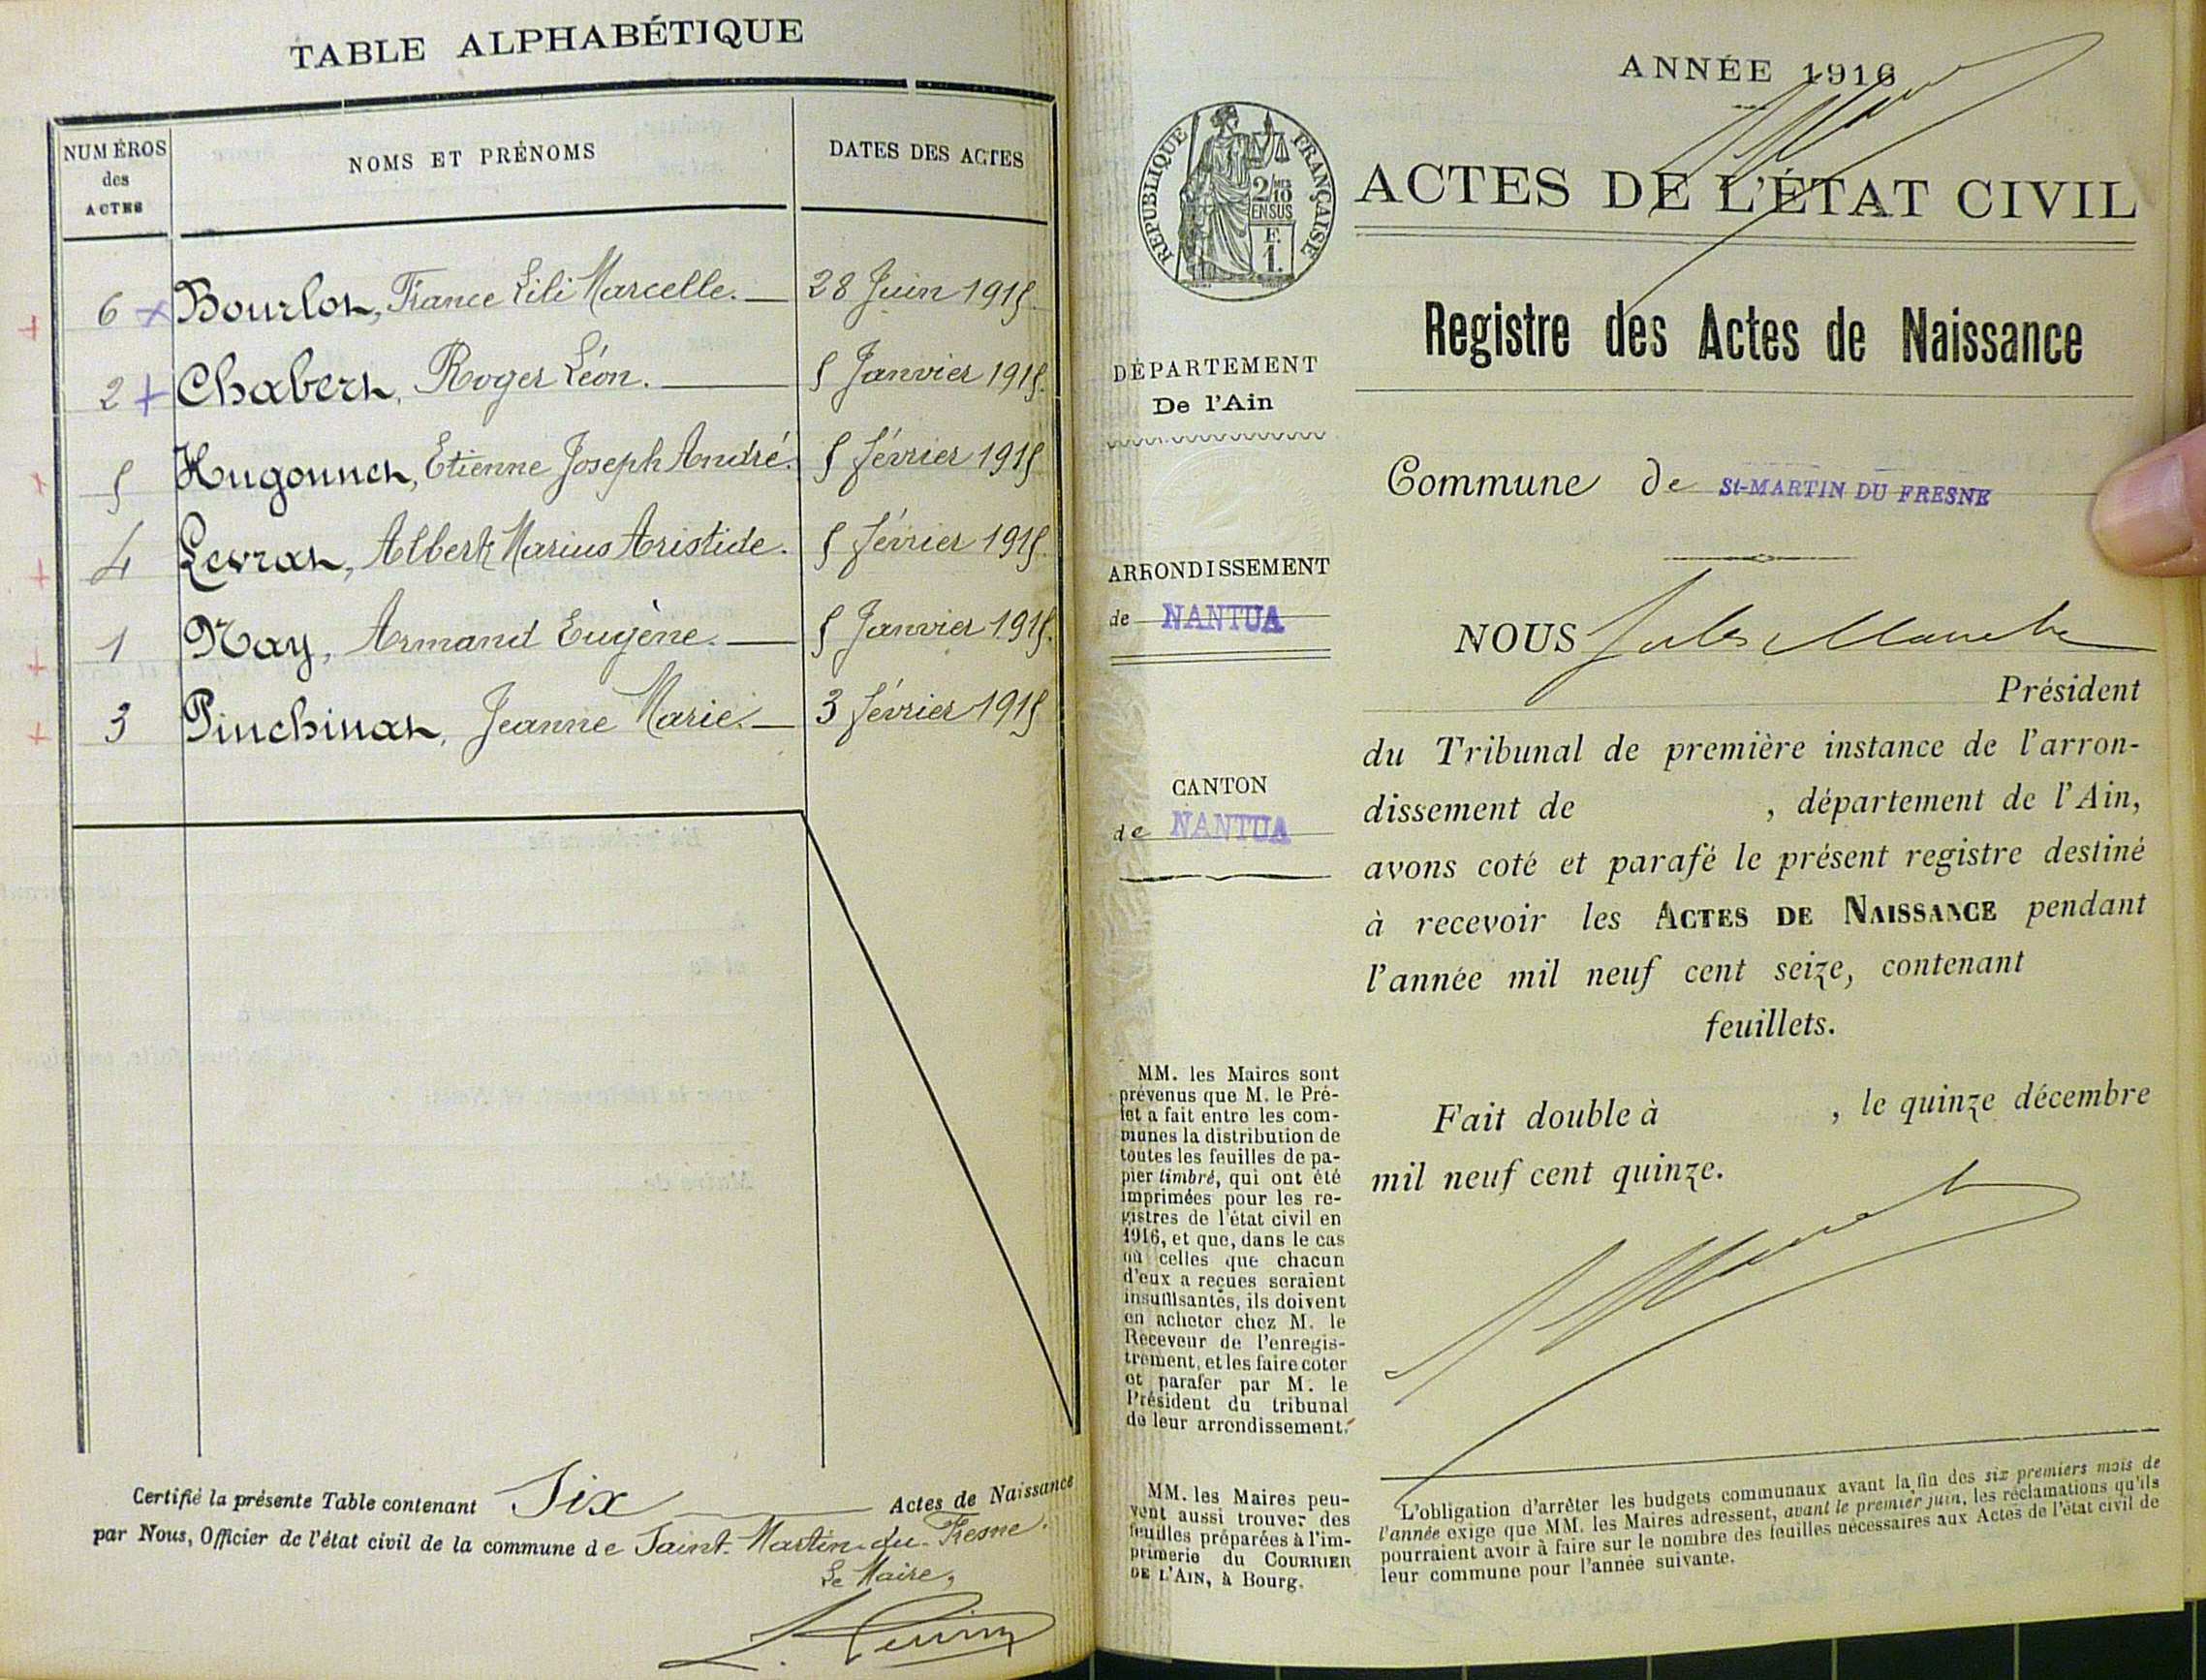 TABLE ALPHABÉTIQUE
NUMÉROS des ACTES
NOMS ET PRÉNOMS
DATES DES ACTES
6 Bourlot, France Lili Marcelle. 28 Juin 1915.
2 Chabert, Roger Léon. 5 Janvier 1915.
5 Hugonnet, Etienne Joseph André. 5 février 1915
4 Levrat, Albert Marius Aristide. 5 février 1915
1 Nay, Armand Eugène. 5 Janvier 1915.
3 Pinchinat, Jeanne Marie. 3 février 1915
Certifié la présente Table contenant Six Actes de Naissance
par Nous, Officier de l'état civil de la commune de Saint-Martin-du-Fresne.
Le Maire,
ANNÉE 1916
RÉPUBLIQUE FRANÇAISE
2/10
EN SUS
F.
1.
ACTES DE L'ÉTAT CIVIL
Registre des Actes de Naissance
DÉPARTEMENT
De l'Ain
Commune de St-MARTIN DU FRESNE
ARRONDISSEMENT
de NANTUA
CANTON
de NANTUA
NOUS Jules
Président
du Tribunal de première instance de l'arron-
dissement de , département de l'Ain,
avons coté et parafé le présent registre destiné
à recevoir les ACTES DE NAISSANCE pendant
l'année mil neuf cent seize, contenant
feuillets.
Fait double à , le quinze décembre
mil neuf cent quinze.
MM. les Maires sont
prévenus que M. le Pré-
fet a fait entre les com-
munes la distribution de
toutes les feuilles de pa-
pier timbré, qui ont été
imprimées pour les re-
gistres de l'état civil en
1916, et que, dans le cas
où celles que chacun
d'eux a reçues seraient
insuffisantes, ils doivent
en acheter chez M. le
Receveur de l'enregis-
trement, et les faire coter
et parafer par M. le
Président du tribunal
de leur arrondissement.
MM. les Maires peu-
vent aussi trouver des
feuilles préparées à l'im-
primerie du COURRIER
DE L'AIN, à Bourg.
L'obligation d'arrêter les budgets communaux avant la fin des six premiers mois de
l'année exige que MM. les Maires adressent, avant le premier juin, les réclamations qu'ils
pourraient avoir à faire sur le nombre des feuilles nécessaires aux Actes de l'état civil de
leur commune pour l'année suivante.